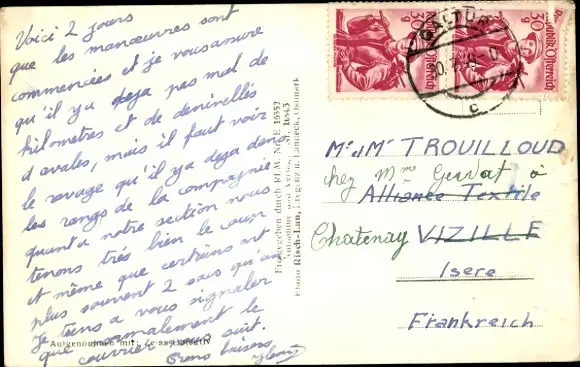 Voici 2 jours
que les manœuvres sont
commencées et je vous assure
qu'il y a deja pas mal de
kilometres et de denivellés
d avales, mais il faut voir
le ravage qu'il y a deja dans
les rangs de la compagnie.
quant a notre section nous
tenons très bien le coup
et même que certains ont
plus souvent 2 sacs qu'un
Je tiens a vous signaler
que normalement le
courrier nous suit.
Gros baisers
Aufgenommen mit Zeiss
Freigegeben durch RLM Nr. E 16352
Photo Risch-Lau, Bregenz u. Lambach, Ostmark
30 g
Republik Österreich
30 g
Republik Österreich
GALTÜR
c
Mr, Mr TROUILLOUD
chez Mme Gervat à
Alliance Textile
Chatenay VIZILLE
Isere
Frankreich